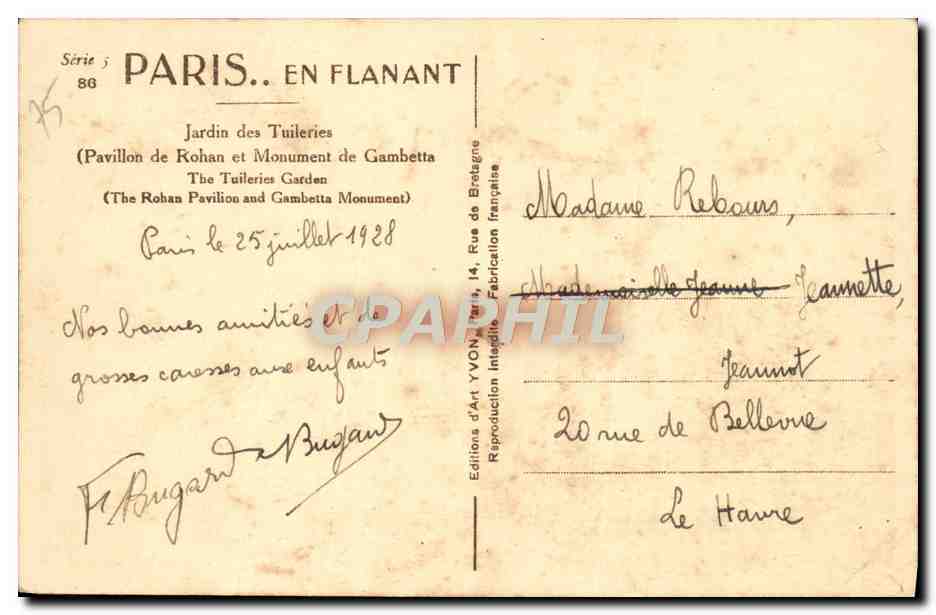 Série 5
86
PARIS.. EN FLANANT
75
Jardin des Tuileries
(Pavillon de Rohan et Monument de Gambetta
The Tuileries Garden
(The Rohan Pavilion and Gambetta Monument)
Paris le 25 juillet 1928
Nos bonnes amitiés et de
grosses caresses aux enfants
Bugard Bugard
Editions d'Art YVON, Paris, 14, Rue de Bretagne
Reproduction Interdite Fabrication française
Madame Rebours,
Mademoiselle Jeanne Jeannette,
Jeannot
20 rue de Bellevue
Le Havre
CPAPHIL